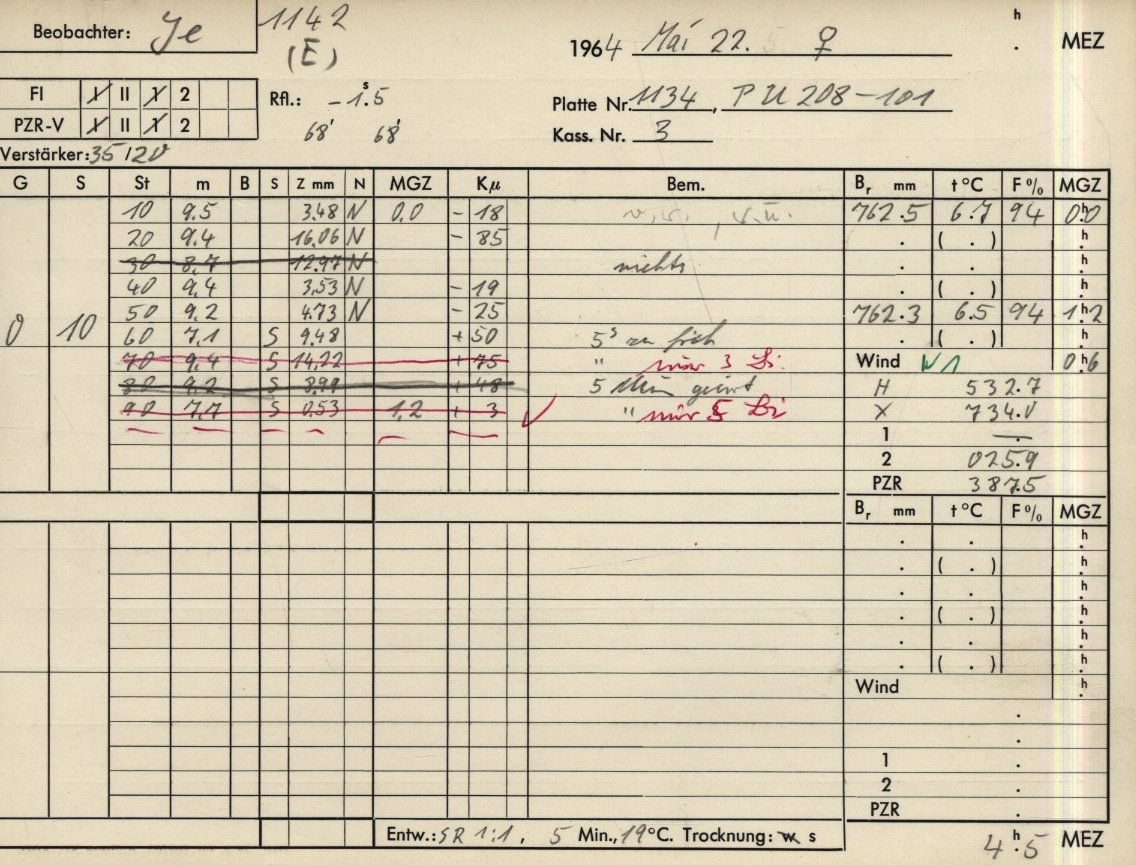 Beobachter: Je 1142 h
(E) 1964 Mai 22. ♀ . MEZ
FI I II 1 2 Rfl.: - 1ˢ.5 Platte Nr. 1134, PU 208-101
PZR-V I II 1 2 68' 68' Kass. Nr. 3
Verstärker: 35/20
G S St m B S Z mm N MGZ Kμ Bem. Br mm t °C F % MGZ
10 9.5 3.48 N 0.0 - 18 762.5 6.7 94 0ʰ.0
20 9.4 16.06 N - 85 . ( . ) h.
30 8.7 12.97 N nichts . . h.
40 9.4 3.53 N - 19 . ( . ) h.
0 10 50 9.2 4.73 N - 25 762.3 6.5 94 1ʰ.2
60 7.1 S 9.48 + 50 5ˢ zu früh . ( . ) h.
70 9.4 S 14.22 + 75 " nur 3 Li. Wind W 1 0ʰ.6
80 9.2 S 8.99 + 48 5 Min geirrt H 532.7
90 7.7 S 0.53 1.2 + 3 " nur 5 Li X 734.0
1 —.
2 025.9
PZR 387.5
Br mm t °C F % MGZ
. . h.
. ( . ) h.
. . h.
. ( . ) h.
. . h.
. ( . ) h.
Wind h.
.
.
1 .
2 .
PZR .
Entw.: SR 1:1, 5 Min., 19 °C. Trocknung: w s 4ʰ.5 MEZ